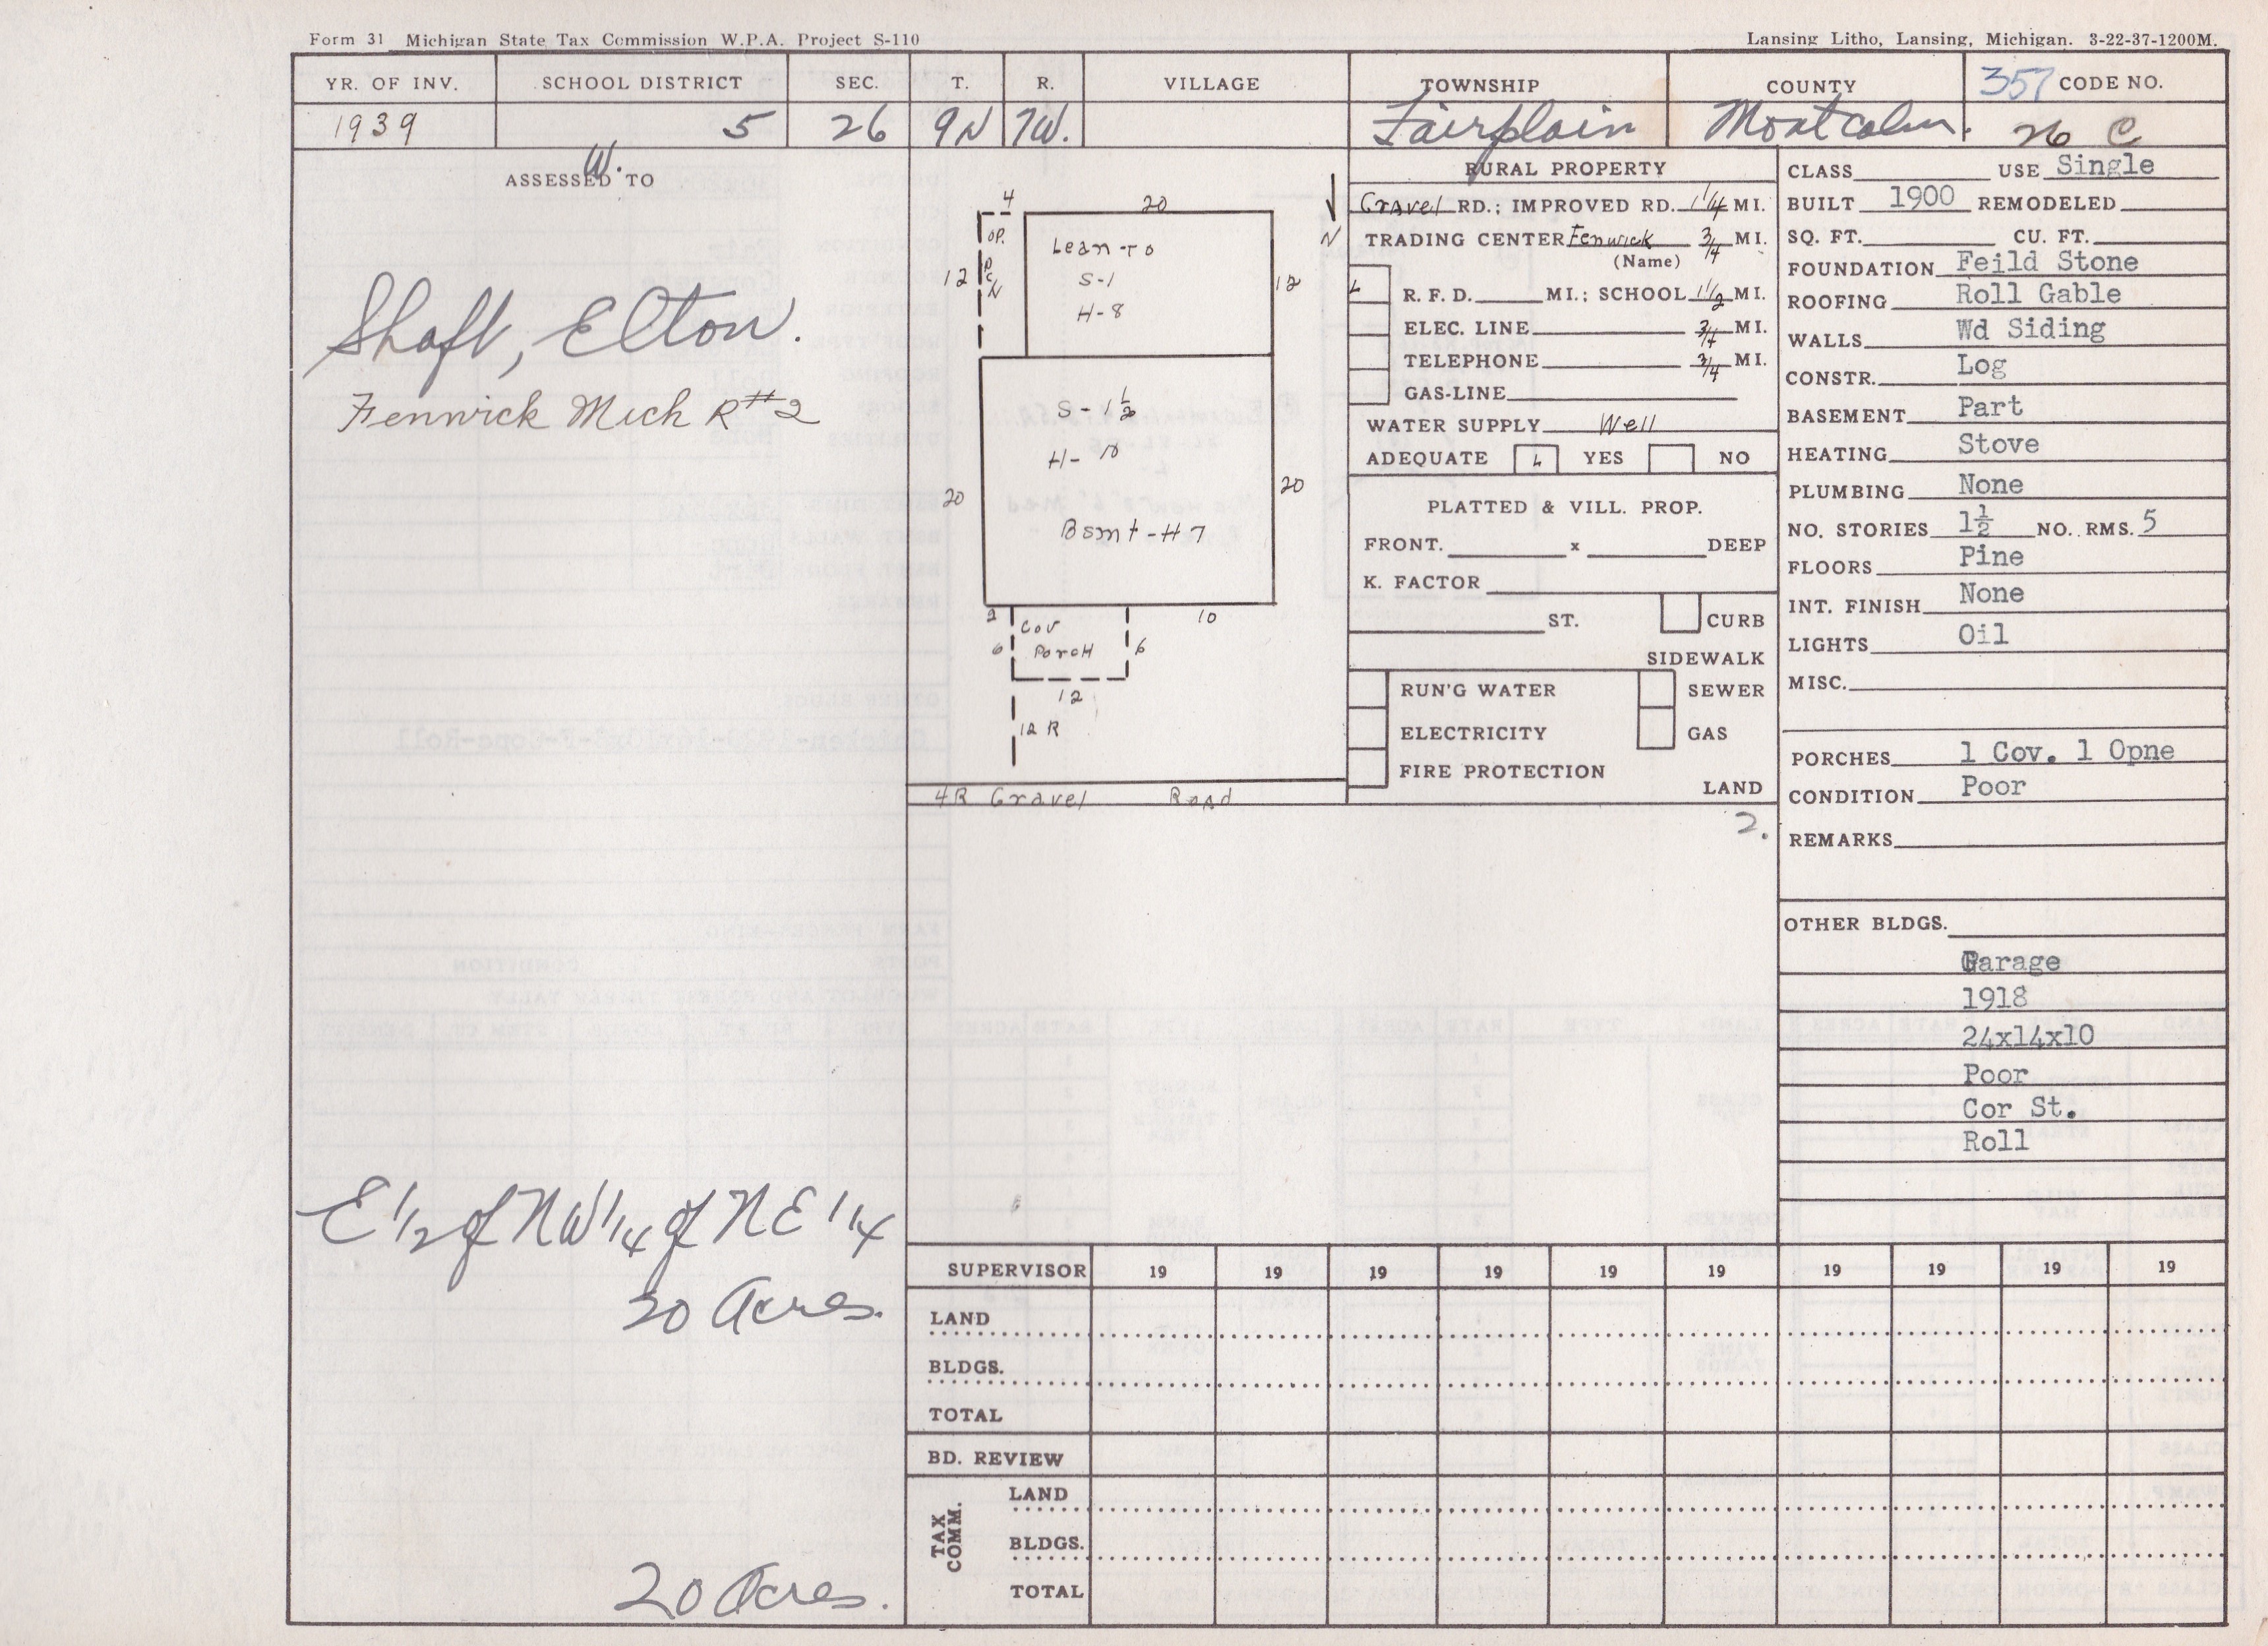 Form 31 Michigan State Tax Commission W.P.A. Project S-110
Lansing Litho, Lansing, Michigan. 3-22-37-1200M.
YR. OF INV. SCHOOL DISTRICT SEC. T. R. VILLAGE TOWNSHIP COUNTY 357 CODE NO.
1939 5 26 9N 7W. Fairplain Montcalm. 26 C
W.
ASSESSED TO
Shaft, Elton.
Fenwick Mich R#2
E 1/2 of NW 1/4 of NE 1/4
20 Acres.
20 Acres.
4 20
OP.
12
Lean-to
S-1
H-8
12
S-1 1/2
H-10
20 20
Bsmt-H7
2 10
Cov
Porch
6 6
12
12 R
4R Gravel Road
N
RURAL PROPERTY
Gravel RD.; IMPROVED RD. 1 1/4 MI.
TRADING CENTER Fenwick 3/4 MI.
(Name)
R. F. D. MI.; SCHOOL 1 1/2 MI.
ELEC. LINE 3/4 MI.
TELEPHONE 3/4 MI.
GAS-LINE
WATER SUPPLY Well
ADEQUATE YES NO
PLATTED & VILL. PROP.
FRONT. x DEEP
K. FACTOR
ST. CURB
SIDEWALK
RUN'G WATER SEWER
ELECTRICITY GAS
FIRE PROTECTION
LAND
2.
CLASS USE Single
BUILT 1900 REMODELED
SQ. FT. CU. FT.
FOUNDATION Feild Stone
ROOFING Roll Gable
WALLS Wd Siding
CONSTR. Log
BASEMENT Part
HEATING Stove
PLUMBING None
NO. STORIES 1½ NO. RMS. 5
FLOORS Pine
INT. FINISH None
LIGHTS Oil
MISC.
PORCHES 1 Cov. 1 Opne
CONDITION Poor
REMARKS
OTHER BLDGS.
Garage
1918
24x14x10
Poor
Cor St.
Roll
SUPERVISOR 19 19 19 19 19 19 19 19 19 19
LAND
BLDGS.
TOTAL
BD. REVIEW
TAX COMM.
LAND
BLDGS.
TOTAL